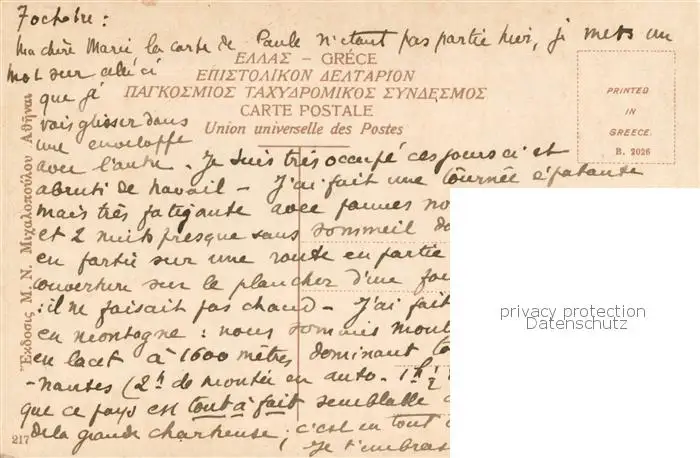 7 octobre :
Ma chère Marie la carte de Paule n'étant pas partie hier, je mets un
mot sur celle ci
ΕΛΛΑΣ – GRÉCE
ΕΠΙΣΤΟΛΙΚΟΝ ΔΕΛΤΑΡΙΟΝ
ΠΑΓΚΟΣΜΙΟΣ ΤΑΧΥΔΡΟΜΙΚΟΣ ΣΥΝΔΕΣΜΟΣ
CARTE POSTALE
Union universelle des Postes
PRINTED
IN
GREECE.
B. 2026
que je
vais glisser dans
une enveloppe
avec l'autre. Je suis très occupé ces jours ci et
abruti de travail – J'ai fait une tournée épatante
mais très fatigante avec pannes
et 2 nuits presque sans sommeil
en partie sur une route en partie
couverture sur le plancher d'une
: il ne faisait pas chaud – J'ai fait
en montagne : nous sommes
en lacet à 1600 mètres dominant
-nantes (2h de montée en auto. 1h 1/2
que ce pays est tout à fait semblable
de la grande chartreuse ; c'est en tout
Je t'embras
Ἔκδοσις Μ. Ν. Μιχαλοπούλου Ἀθῆναι
217
privacy protection
Datenschutz